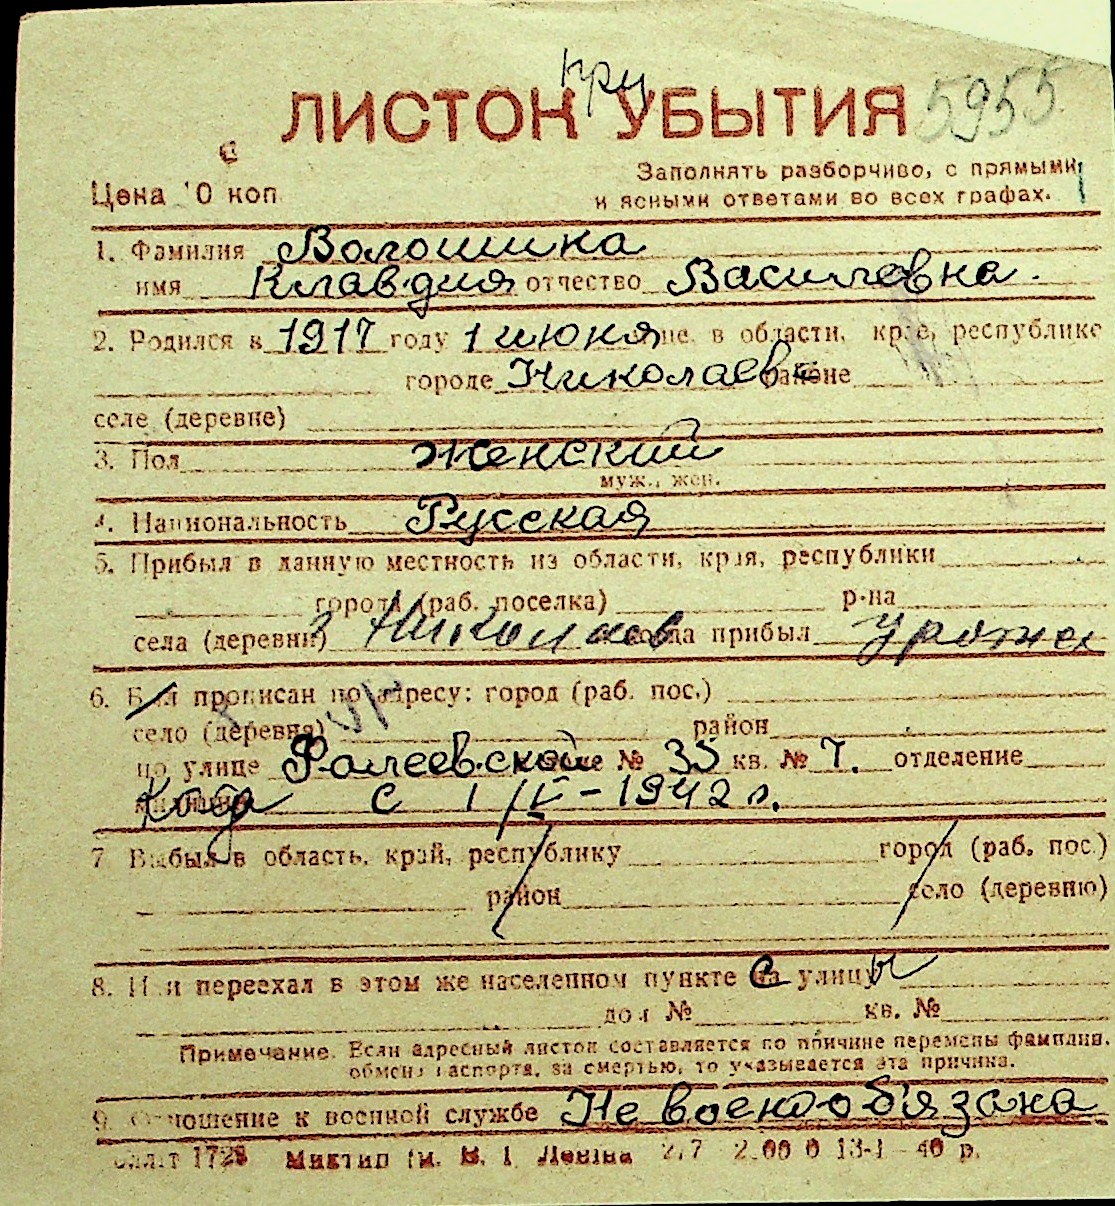 при
ЛИСТОК УБЫТИЯ 5955
Цена 10 коп
Заполнять разборчиво, с прямыми
и ясными ответами во всех графах.
1. Фамилия Волошина
имя Клавдия отчество Василевна.
2. Родился в 1917 году 1 июня в области, крае, республике
городе Николаеве районе
селе (деревне)
3. Пол женский
муж., жен.
4. Национальность Русская
5. Прибыл в данную местность из области, края, республики
города (раб. поселка) р-на
села (деревни) г Николаев когда прибыл урожен
6. Был прописан по адресу: город (раб. пос.)
село (деревня) район
по улице Фалеевской № 35 кв. № 7. отделение
милиции с 1/IV-1942 г.
7 Выбыл в область, край, республику город (раб. пос.)
район село (деревню)
8. Или переехал в этом же населенном пункте с на улицы
дом № кв. №
Примечание. Если адресный листок составляется по причине перемены фамилии,
обмена паспорта, за смертью, то указывается эта причина.
9. Отношение к военной службе Не военнообязана
1728 Миктип Ім. В. І. Леніна 2.7 13-І - 40 р.